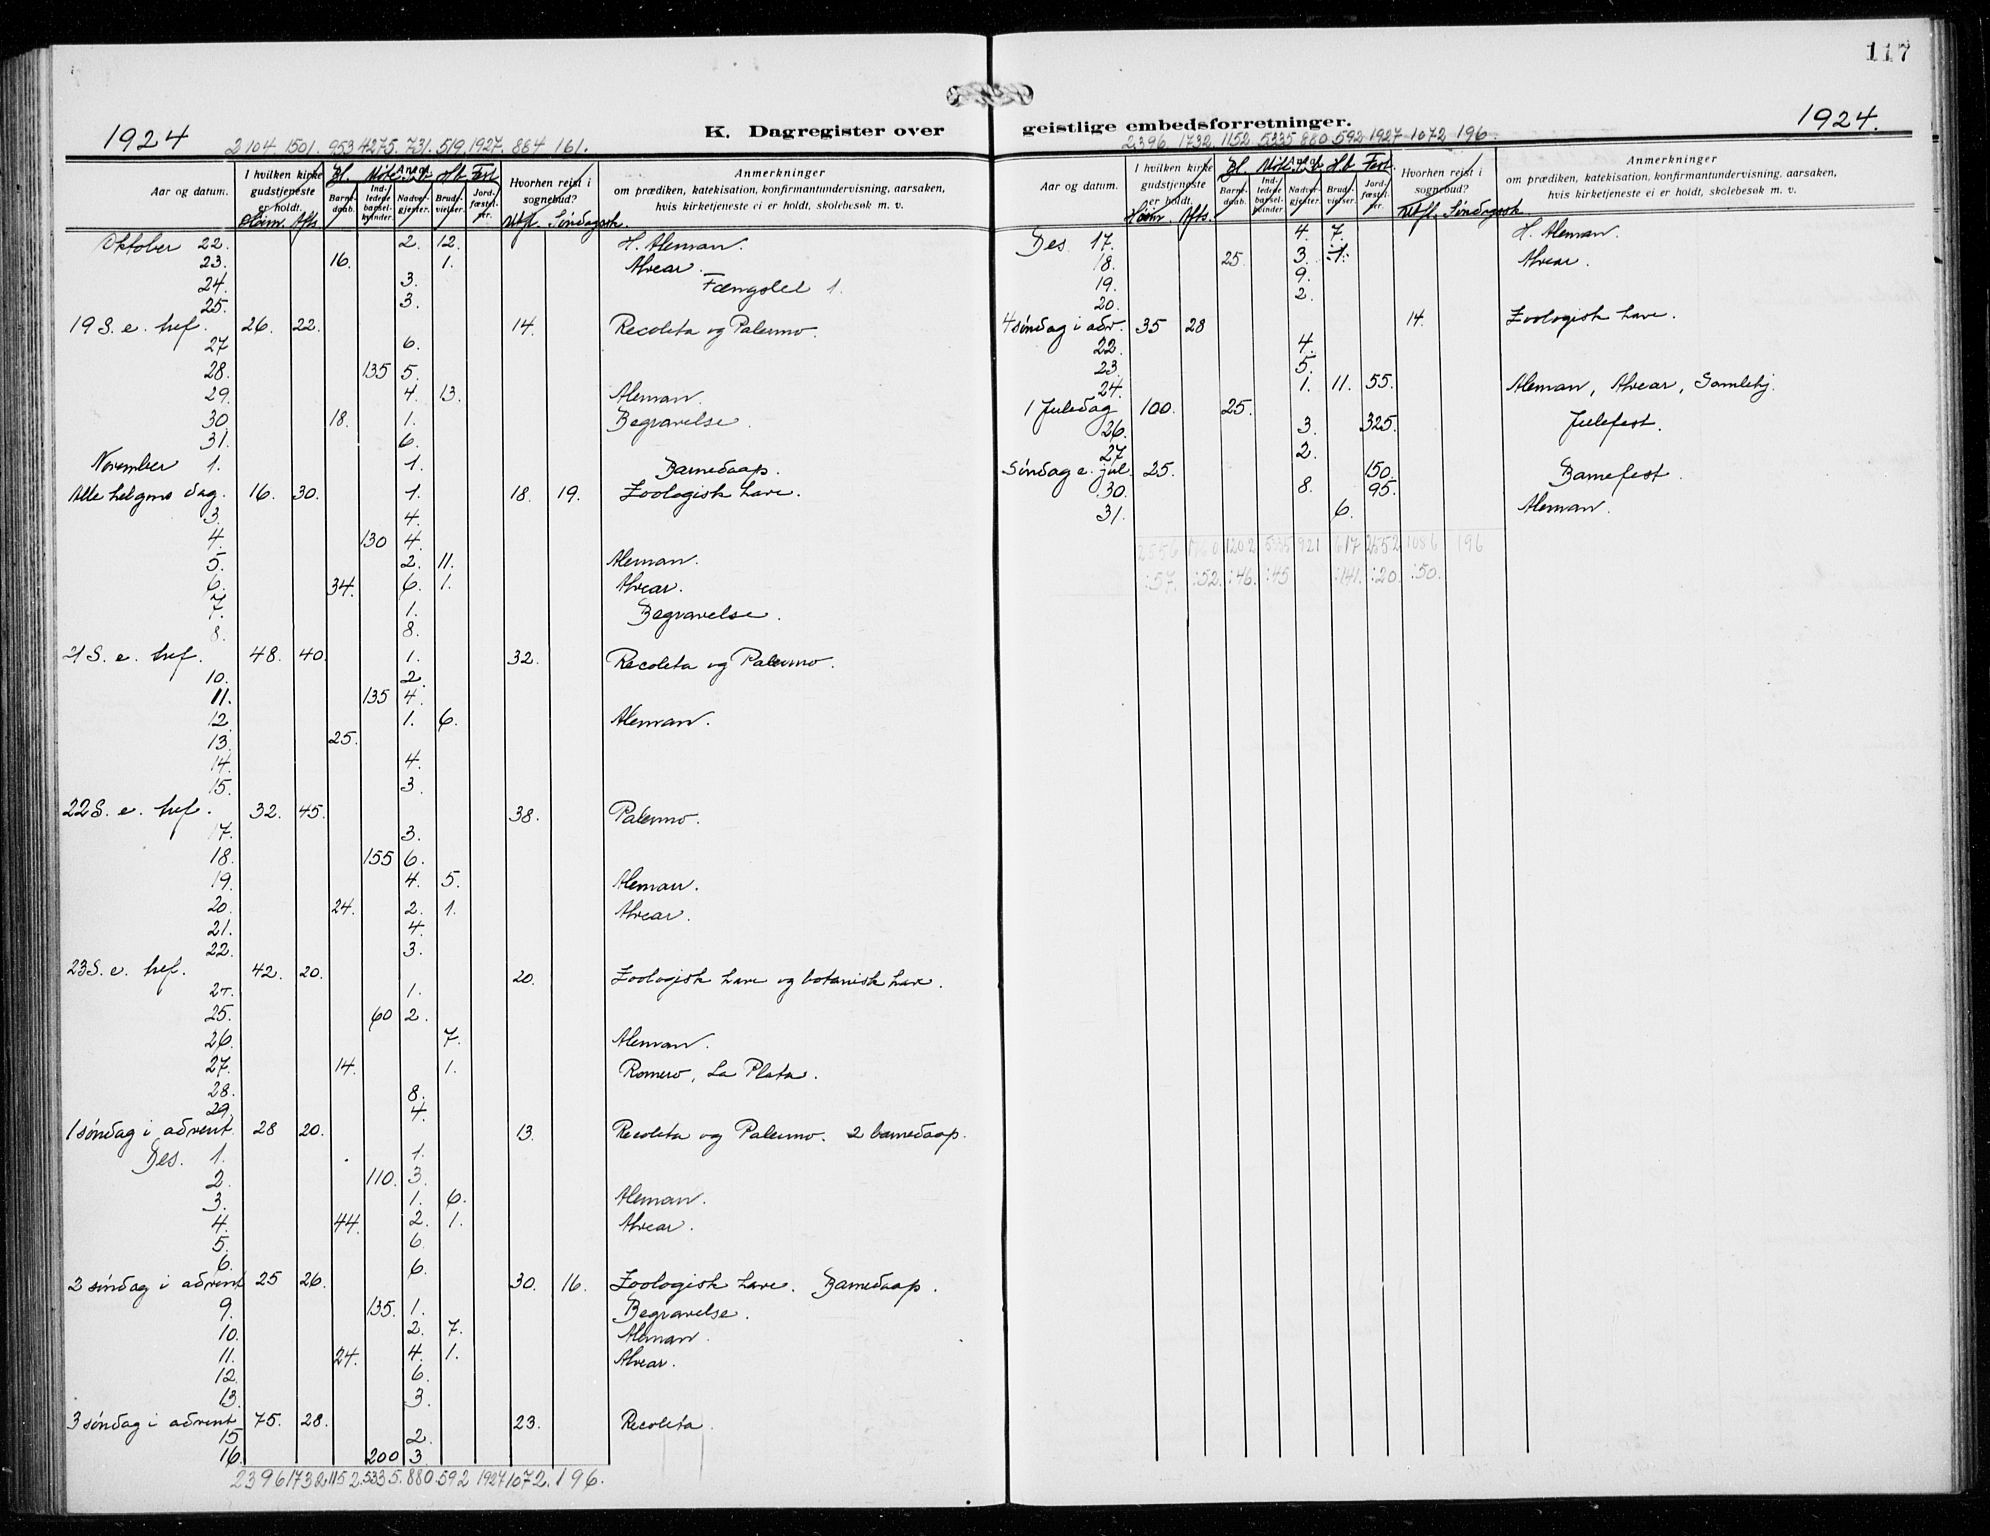 117
1924
K. Dagregister over
2104 1501. 953 4275. 731. 519. 1927. 884 161.
Aar og datum.
I hvilken kirke gudstjeneste er holdt.
Barne-daab.
Ind-ledede barsel-kvinder.
Antal
Nadver-gjester.
Brude-vielser.
Jord-fæstel-ser.
Hvorhen reist i sognebud?
Anmerkninger
om prædiken, katekisation, konfirmantundervisning, aarsaken,
hvis kirketjeneste ei er holdt, skolebesøk m. v.
Høim. Afts. Søndagssk.
Oktober 22. 2. 12. H. Aleman.
23. 16. 1. Alvear.
24. 3. Fængslet 1.
25. 3.
19 S. e. tref. 26. 22. 14. Recoleta og Palermo.
27 6.
28. 135 5.
29. 4. 13. Aleman.
30 18. 1. Begravelse.
31. 6.
November 1. 1. Barnedaap.
Alle helgens dag. 16. 30. 1. 18. 19. Zoologisk have.
3. 4.
4. 130 4.
5. 2. 11. Aleman.
6. 34. 6. 1. Alvear.
7. 1. Begravelse.
8. 8.
21 S. e. tref. 48. 40. 1. 32. Recoleta og Palermo.
10. 2.
11. 135 4.
12 1. 6. Aleman.
13. 25.
14. 4.
15. 3.
22 S. e. tref. 32. 45. 38. Palermo.
17. 3.
18. 155 6.
19. 4. 5. Aleman.
20. 24. 2. 1. Alvear.
21. 4.
22. 3.
23 S. e. tref. 42. 20. 20. Zoologisk have og botanisk have.
24. 1.
25. 60 2.
26. 7. Aleman.
27. 14. 1. Romero, La Plata.
28. 8.
29. 4.
1 søndag i advent. 28 20. 13. Recoleta og Palermo. 2 barnedaap.
Des. 1. 1.
2. 110. 3.
3. 1. 6. Aleman.
4. 44. 2. 1. Alvear.
5. 6.
6. 6.
2 søndag i advent 25 26. 30. 16. Zoologisk have. Barnedaap.
9. 135. 1. Begravelse.
10. 2. 7. Aleman.
11. 24. 4. 1. Alvear.
12. 6.
13. 3.
3 søndag i advent 75. 28. 23. Recoleta.
15 2.
16. 200 3.
2396 1732 1152. 5335. 880. 592 1927 1072. 196.
geistlige embedsforretninger.
1924.
2396 1732. 1152 5335 880 592 1927 1072 196.
Aar og datum.
I hvilken kirke gudstjeneste er holdt.
Barne-daab.
Ind-ledede barsel-kvinder
Antal
Nadver-gjester.
Brude-vielser.
Jord-fæstel-ser.
Hvorhen reist i sognebud?
Anmerkninger
om prædiken, katekisation, konfirmantundervisning, aarsaken,
hvis kirketjeneste ei er holdt, skolebesøk m. v.
Høim. Afts. Søndagssk
Des 17. 4. 7. H. Aleman.
18. 25. 3. 1. Alvear.
19. 9.
20. 2.
4 søndag i adv. 35 28 14. Zoologisk have.
22. 4.
23. 5.
24. 1. 11. 55. Aleman, Alvear, Samlehj.
1 Juledag 100. 25.
26. 3. 325. Julefest.
27 2.
Søndag e. jul 25. 150. Barnefest.
30. 8. 95.
31. 6. Aleman.
2556 1760 1202 5335 921 617 2552 1086 196
:57. :52. :46. :45 :141. :20. :50.